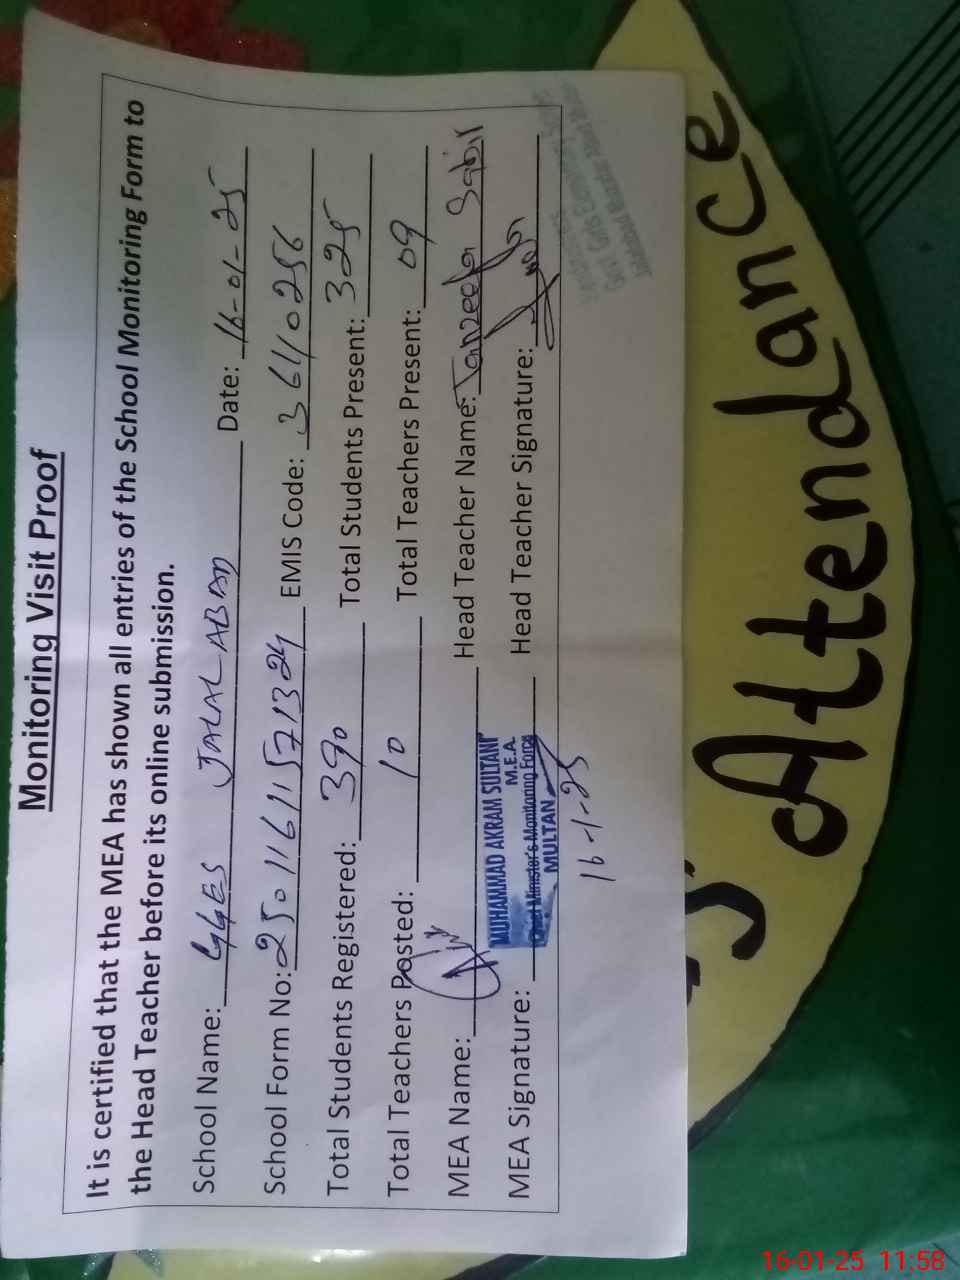 Monitoring Visit Proof
It is certified that the MEA has shown all entries of the School Monitoring Form to
the Head Teacher before its online submission.
School Name: GGES JALALABAD Date: 16-01-25
School Form No: 25011611571324 EMIS Code: 36110256
Total Students Registered: 390 Total Students Present: 325
Total Teachers Posted: 10 Total Teachers Present: 09
MEA Name: Head Teacher Name: Tanzeela Sabir
MUHAMMAD AKRAM SULTANI
M.E.A.
MEA Signature: Chief Minister's Monitoring Force Head Teacher Signature:
MULTAN
16-1-25
Attendance
16-01-25 11:58